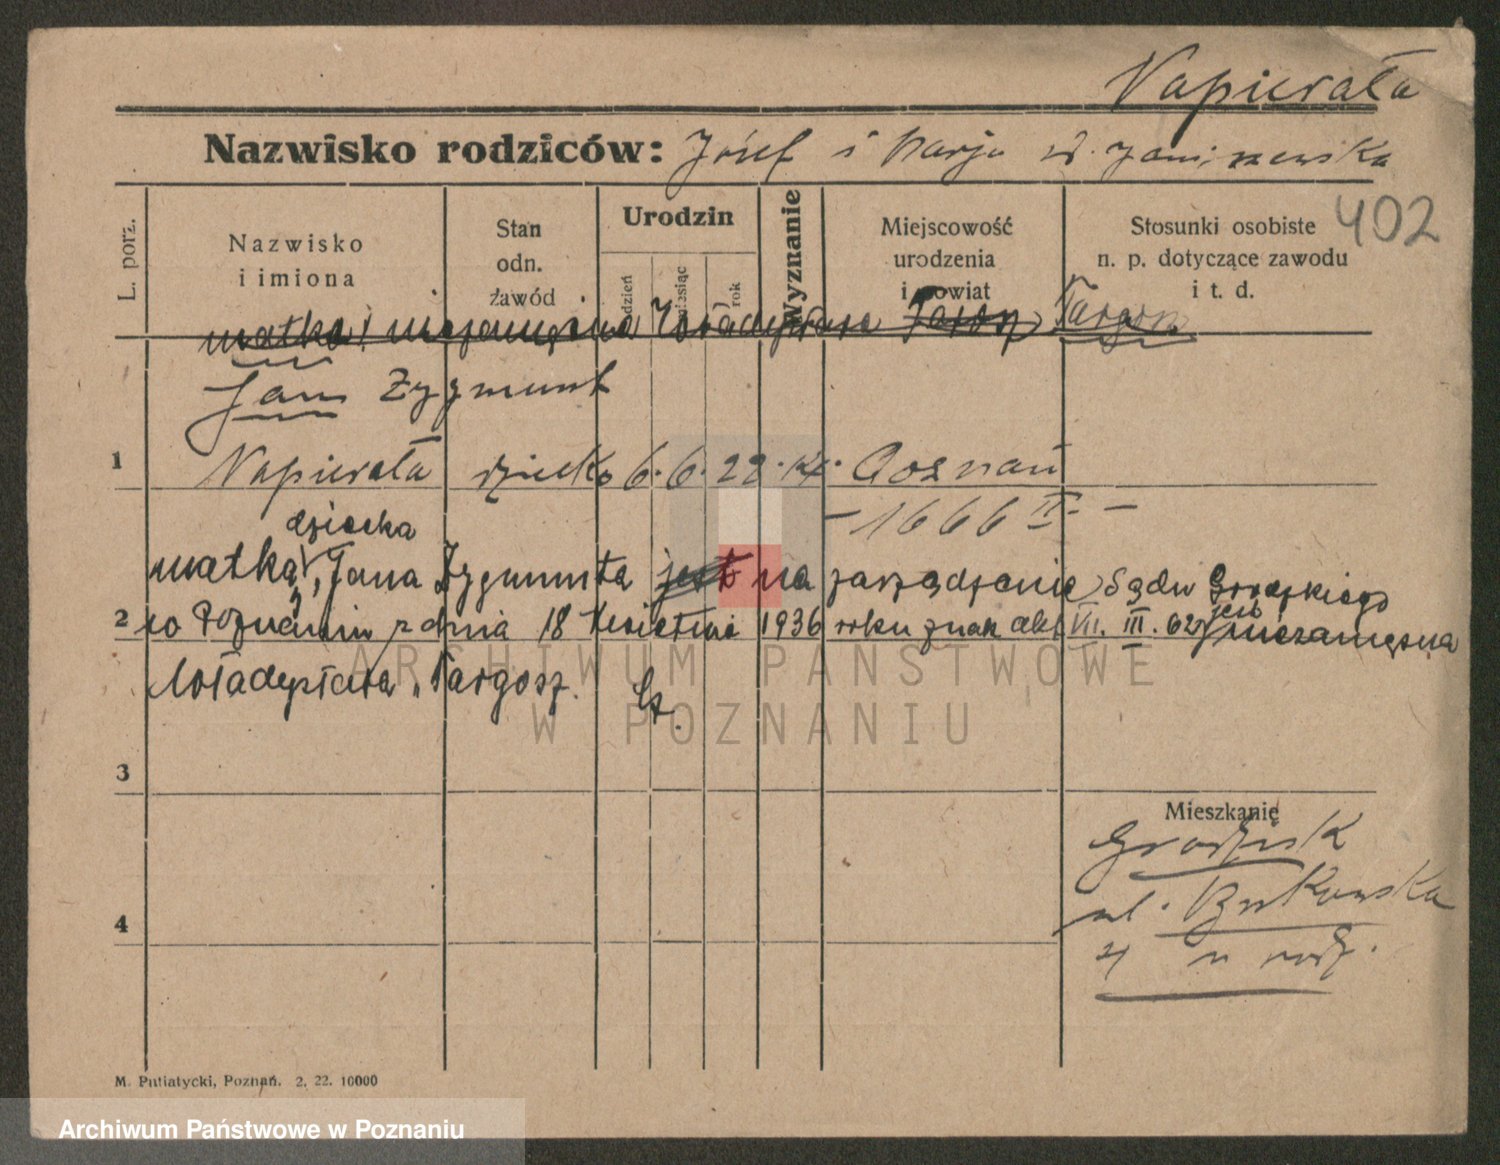 Napierała
Nazwisko rodziców: Józef i Marja z d. Janiszewska
402
L. porz.
Nazwisko
i imiona
Stan
odn.
zawód
Urodzin
dzień
miesiąc
rok
Wyznanie
Miejscowość
urodzenia
i powiat
Stosunki osobiste
n. p. dotyczące zawodu
i t. d.
matka: niezamężna Władysława Targosz
Jan Zygmunt
1 Napierała dziecko 6. 6. 22. kt. Poznań
– 1666 II –
dziecka
matką, Jana Zygmunta jest na zarządzenie Sądu Grodzkiego
2 w Poznaniu z dnia 18 kwietnia 1936 roku znak akt VII. III. 62 jest niezamężna
Władysława Targosz.
3
4
Mieszkanie
Grodzisk
ul. Bukowska
4 u rodz.
M. Putiatycki, Poznań. 2. 22. 10000
ARCHIWUM PAŃSTWOWE
W POZNANIU
Archiwum Państwowe w Poznaniu